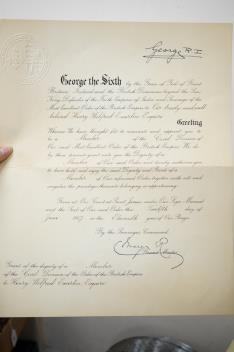 George R.I.
George the Sixth by the Grace of God of Great
Britain, Ireland and the British Dominions beyond the Seas
King, Defender of the Faith Emperor of India and Sovereign of the
Most Excellent Order of the British Empire to Our trusty and well
beloved Henry Wilfred
Greeting
Whereas We have thought fit to nominate and appoint you to
be a Member of the Civil Division of
Our said Most Excellent Order of the British Empire We do
by these presents grant unto you the Dignity of a
Member of Our said Order and hereby authorise you
to have hold and enjoy the said Dignity and Rank of a
Member of Our aforesaid Order together with all and
singular the privileges thereunto belonging or appertaining.
Given at Our Court at Saint James's under Our Sign Manual
and the Seal of Our said Order this Twelfth day of
June 1947 in the Eleventh year of Our Reign.
By the Sovereign's Command.
Grand Master
Grant of the dignity of a Member
of the Civil Division of the Order of the British Empire
to Henry Wilfred Esquire